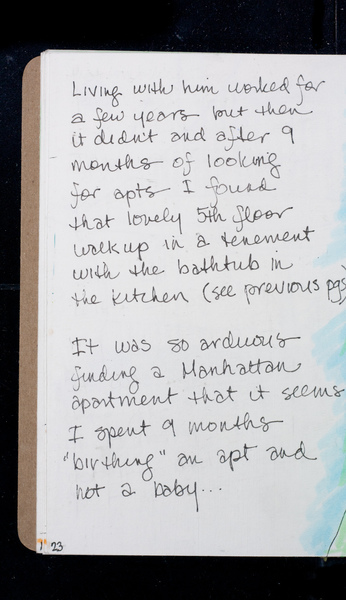 Living with him worked for
a few years but then
it didn't and after 9
months of looking
for apts I found
that lovely 5th floor
walkup in a tenement
with the bathtub in
the kitchen (see previous pgs)
It was so arduous
finding a Manhattan
apartment that it seems
I spent 9 months
"birthing" an apt and
not a baby...
23